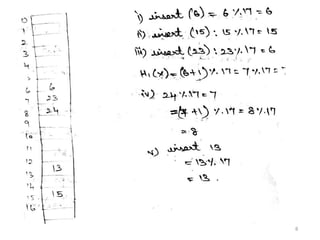 0
1
2
3
4
5
6 6
7 23
8 24
9
10
11
12
13 13
14
15 15
16
i) insert (6) = 6 % 17 = 6
ii) insert (15) : 15 % 17 = 15
iii) insert (23) : 23 % 17 = 6
H₁(x) = (6+1) % 17 = 7 % 17 = 7
iv) 24 % 17 = 7
= (7+1) % 17 = 8 % 17
= 8
v) insert 13
= 13 % 17
= 13.
8